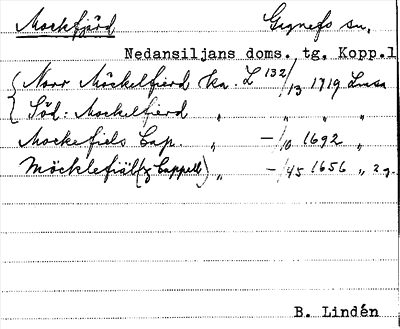 Mockfjärd Gagnefs sn.
Nedansiljans doms. tg. Kopp.l
Norr Möckelfierd ka. L 132/13 1719 Lmsa
Söd: Mockelfierd " " " "
Mockefiels Cap. " —/10 1692 "
Möcklefiäl (z Cappell) " —/45 1656 " 2 g.
B. Lindén